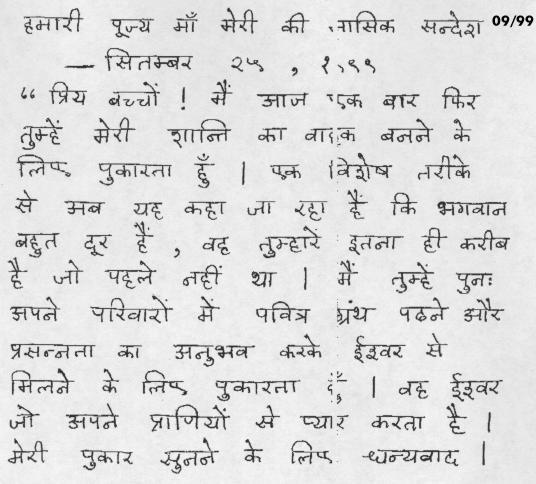 हमारी पूज्य माँ मेरी की मासिक सन्देश 09/99
— सितम्बर २५ , १९९९
“ प्रिय बच्चों ! मैं आज एक बार फिर
तुम्हें मेरी शान्ति का वाहक बनने के
लिए पुकारता हूँ | एक विशेष तरीके
से अब यह कहा जा रहा है कि भगवान
बहुत दूर हैं , वह तुम्हारे इतना ही करीब
है जो पहले नहीं था | मैं तुम्हें पुनः
अपने परिवारों में पवित्र ग्रंथ पढने और
प्रसन्नता का अनुभव करके ईश्वर से
मिलने के लिए पुकारता हूँ | वह ईश्वर
जो अपने प्राणियों से प्यार करता है |
मेरी पुकार सुनने के लिए धन्यवाद |